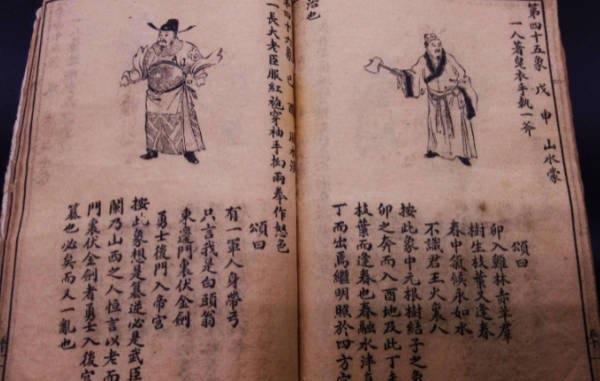 第四十五象 戊申 山水蒙
一人著皂衣手執一斧
頌曰
卯入雞林亦羊群
樹生枝葉又逢春
春中領候永如水
不識君王火東八
按此象中元根樹結子之
卯之奔而入酉地及此丁
枝葉而逢春也春融水津
丁而出焉繼明照於四方
治也
四十六象 己酉
一長大老臣服紅袍穿袖手掬兩拳作怒色
頌曰
有一軍人身帶弓
只言我是白頭翁
東邊門裏伏金劍
勇士後門入帝宮
按此象想是篡逆必是武臣
閫乃山西之人恒言以老而
門裏伏金劍者勇士入後宮
篡也必矣而又一亂也